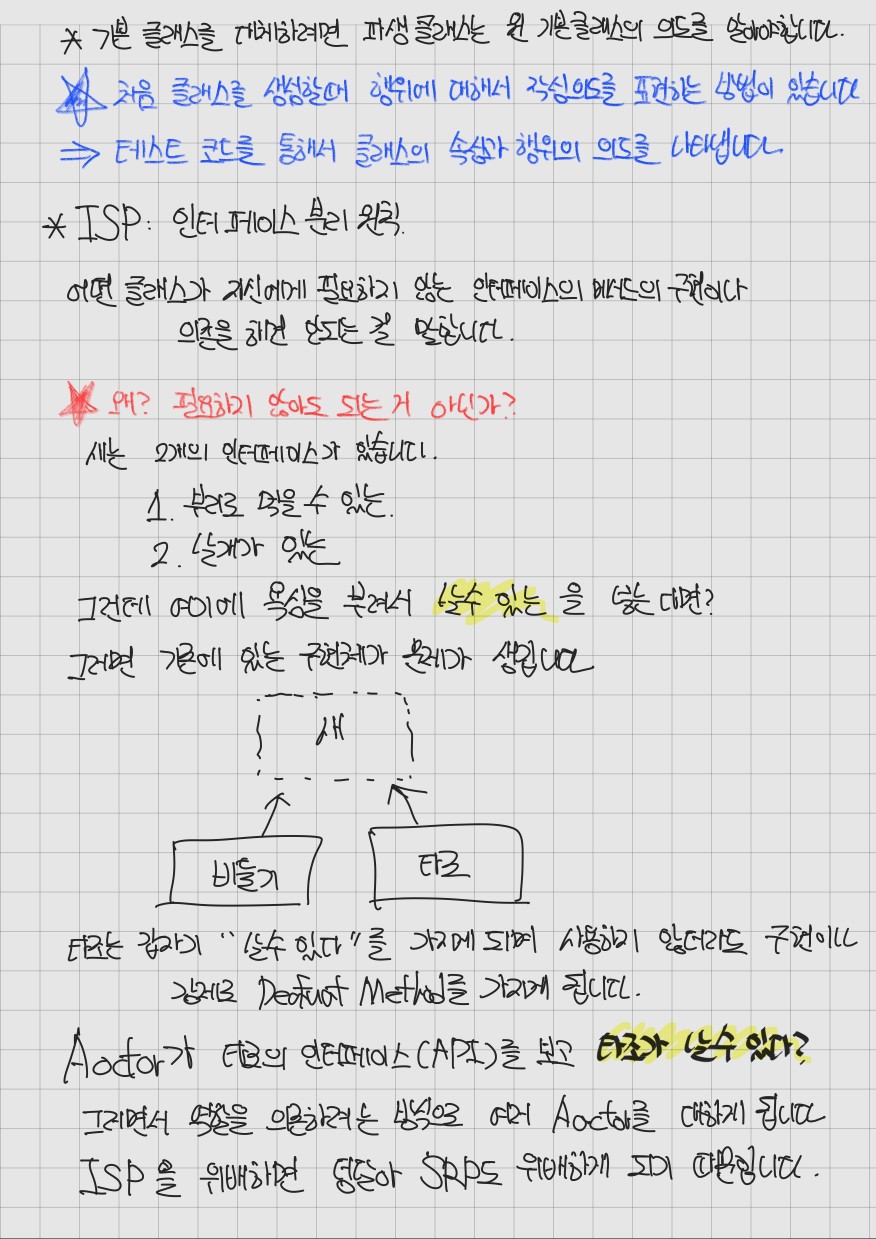 * 기본 클래스를 대체하려면 파생 클래스는 원 기본클래스의 의도를 알아야합니다.
처음 클래스를 생성할때 행위에 대해서 작성의도를 표현하는 방법이 있습니다
⇒ 테스트 코드를 통해서 클래스의 속성과 행위의 의도를 나타냅니다.
* ISP: 인터페이스 분리 원칙.
어떤 클래스가 자신에게 필요하지 않는 인터페이스의 메서드의 구현이나
의존을 하면 안되는 걸 말합니다.
왜? 필요하지 않아도 되는거 아닌가?
새는 2개의 인터페이스가 있습니다.
1. 부리로 먹을 수 있는.
2. 날개가 있는
그런데 여기에 욕심을 부려서 날수 있는 을 넣는 다면?
그러면 기존에 있는 구현체가 문제가 생깁니다
새
비둘기
타조
타조는 갑자기 "날수 있다"를 가지게 되며 사용하지 않더라도 구현이나
강제로 Deafuat Method를 가지게 됩니다.
Aoctor가 타조의 인터페이스(API)를 보고 타조가 날수 있다?
그러면서 역할을 의존하려는 방식으로 여러 Aoctor를 대하게 됩니다
ISP을 위배하면 덩달아 SRP도 위배하게 되기 때문입니다.